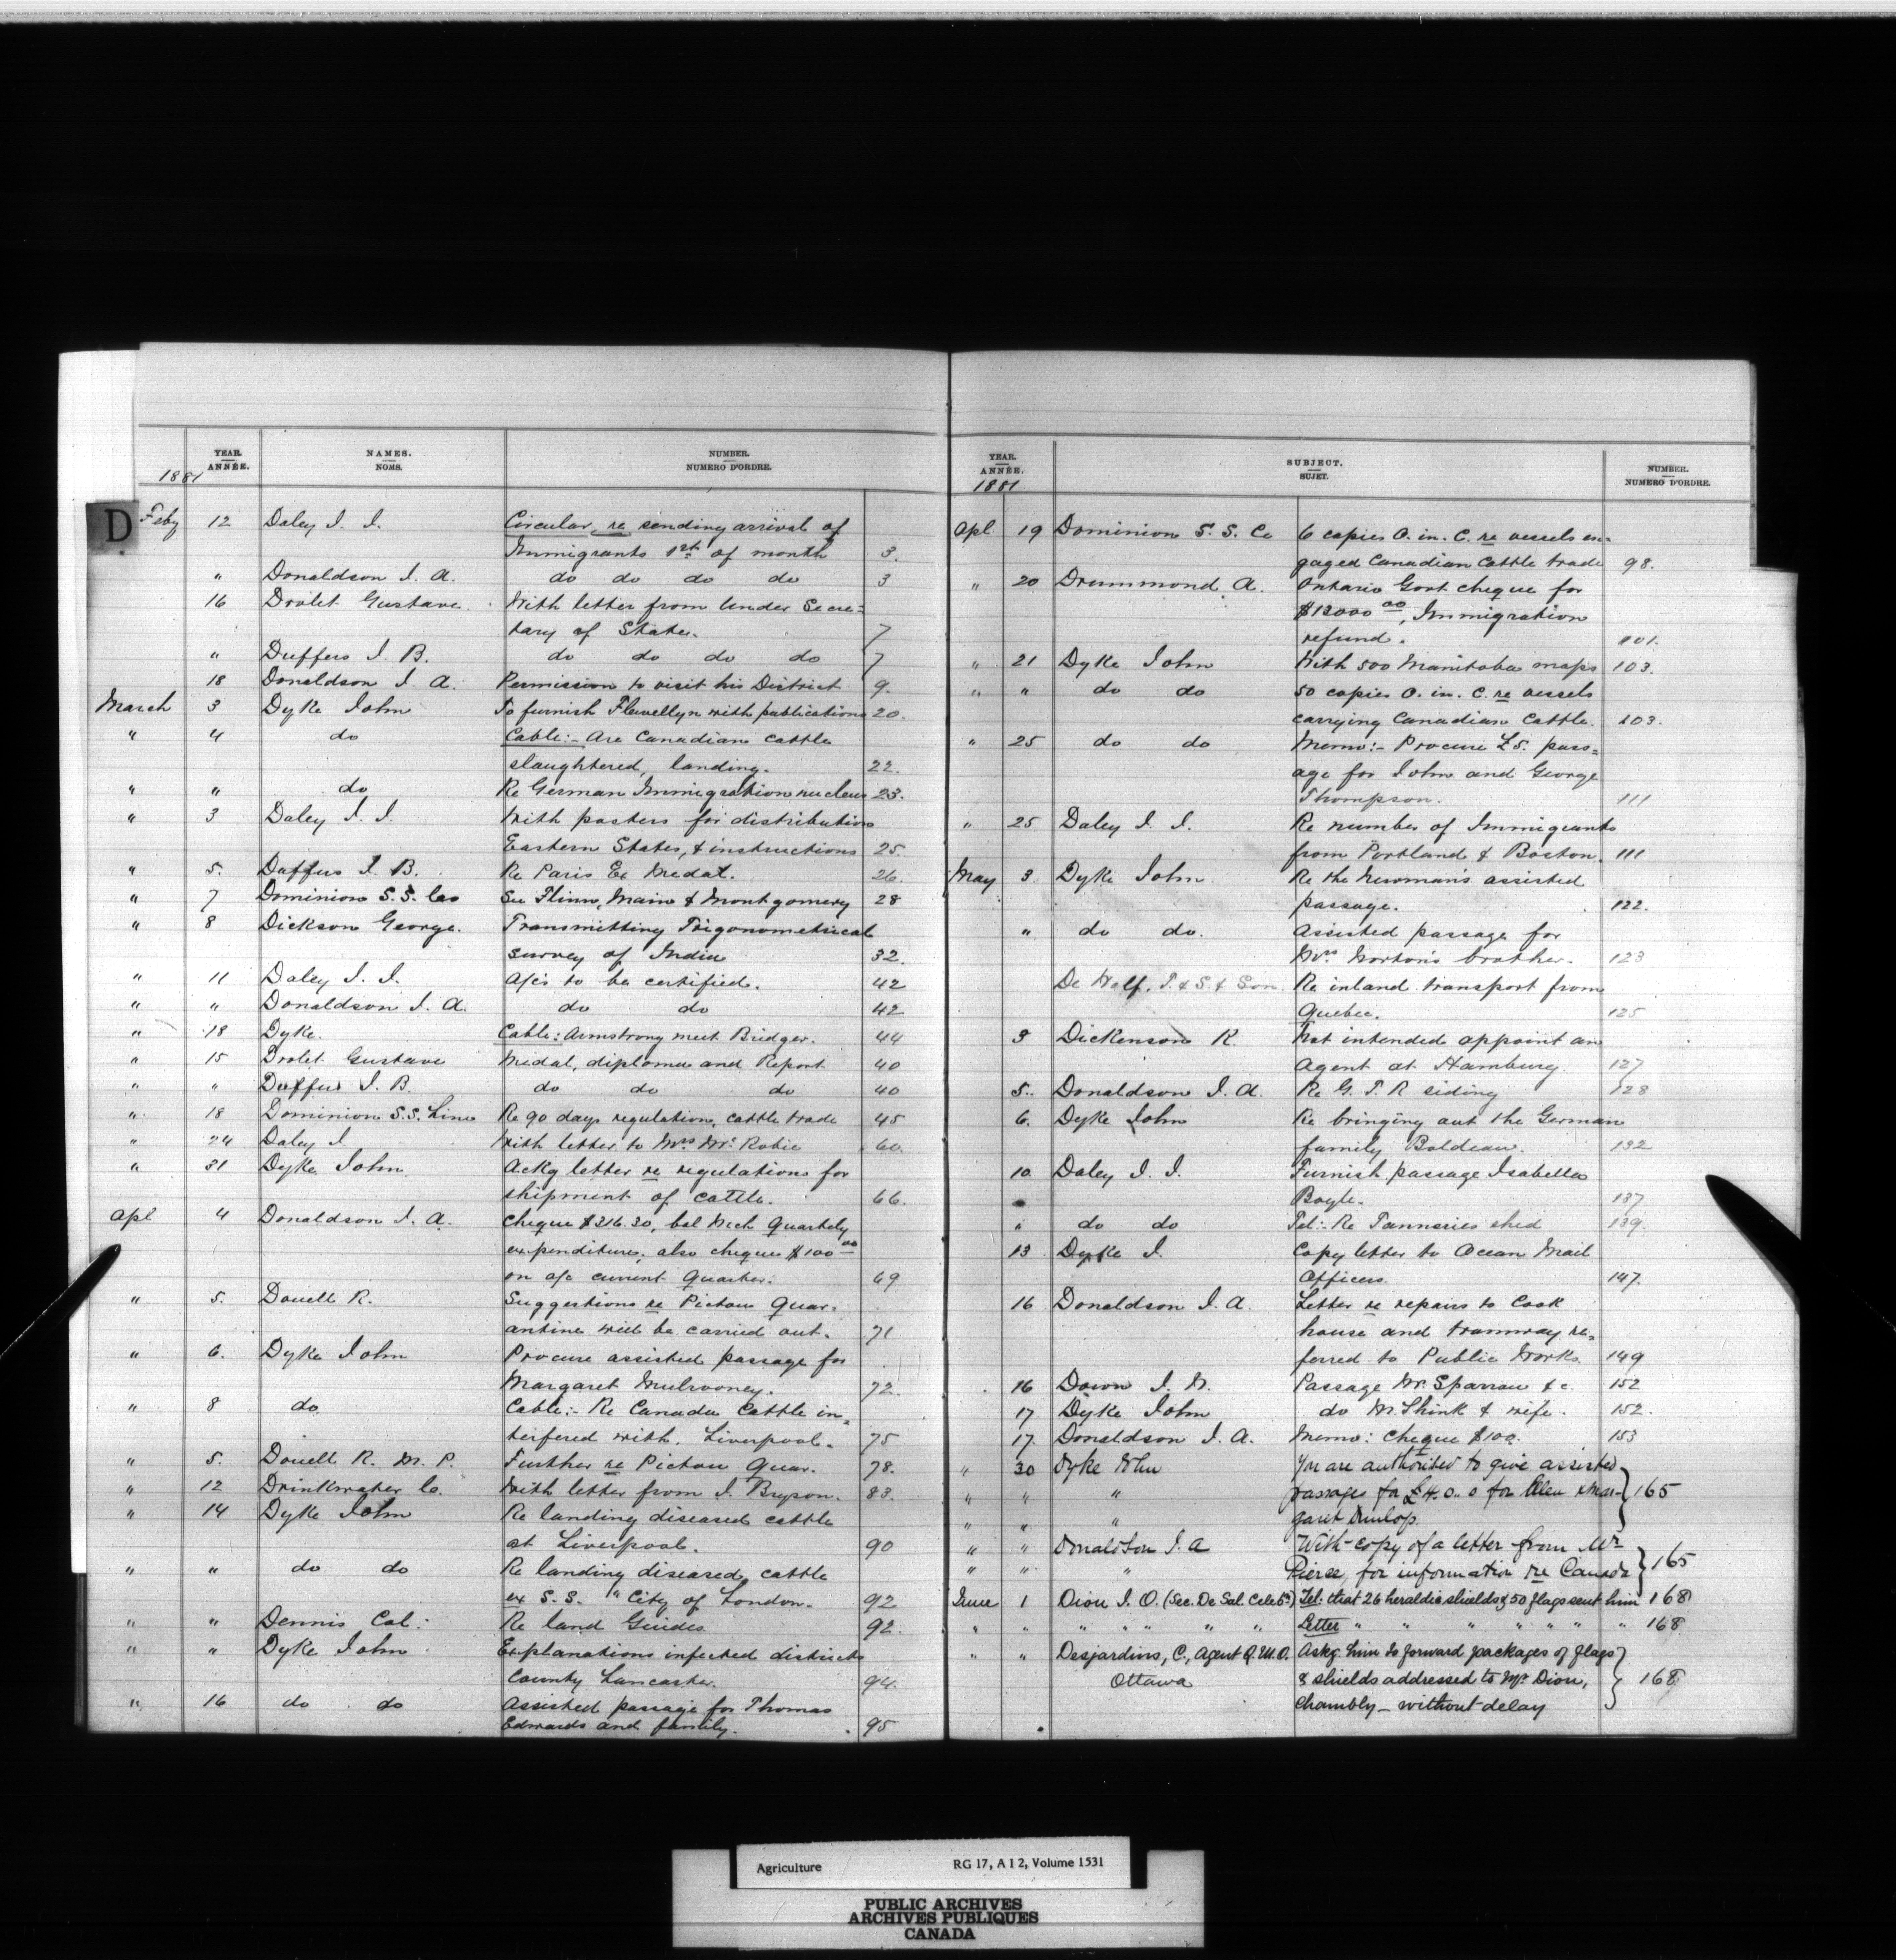 YEAR. ANNÉE. NAMES. NOMS. NUMBER. NUMERO D'ORDRE.
1881
D
Feby 12 Daley J. J. Circular re sending arrival of
Immigrants 1st of month 3.
" Donaldson J. A. do do do do 3
16 Drolet Gustave With letter from Under Secre=
tary of State. 7
" Duffus J. B. do do do do 7
18 Donaldson J. A. Permission to visit his District 9.
March 3 Dyke John To furnish Flewellyn with publications 20.
" 4 do Cable:- Are Canadian cattle
slaughtered, landing. 22.
" " do Re German Immigration nucleus 23.
" 3 Daley J. J. With posters for distribution
Eastern States, & instructions 25.
" 5. Duffus J. B. Re Paris Ex Medal. 26.
" 7 Dominion S. S. Cos See Flinn, Main & Montgomery 28
" 8 Dickson George. Transmitting Trigonometrical
survey of India 32.
" 11 Daley J. J. A/cs to be certified. 42
" " Donaldson J. A. do do 42
" 18 Dyke. Cable: Armstrong meet Bridger. 44
" 15 Drolet Gustave Medal, diploma and Report 40
" " Duffus J. B. do do do 40
" 18 Dominion S.S. Line Re 90 days regulation, cattle trade 45
" 24 Daley J. With letter to Mrs Mc Robie 60.
" 31 Dyke John Ackg letter re regulations for
shipment of cattle. 66.
Apl 4 Donaldson J. A. Cheque $216.30, bal Mch Quarterly
expenditure, also cheque $100 00
on a/c current Quarter. 69
" 5. Douell R. Suggestions re Pictou Quar=
antine will be carried out. 71
" 6. Dyke John Procure assisted passage for
Margaret Mulrooney. 72.
" 8 do Cable:- Re Canada Cattle in=
terfered with. Liverpool. 75
" 5. Douell R. M. P. Further re Pictou Quar. 78.
" 12 Drinkwater C. With letter from J. Bryson. 83.
" 14 Dyke John Re landing diseased cattle
at Liverpool. 90
" " do do Re landing diseased cattle
ex S. S. "City of London. 92
" " Dennis Col: Re land Guides 92.
" " Dyke John Explanations infected districts
County Lancaster. 94.
" 16 do do Assisted passage for Thomas
Edwards and family. 95
YEAR. ANNÉE. SUBJECT. SUJET. NUMBER. NUMERO D'ORDRE.
1881
Apl 19 Dominion S. S. Co 6 copies O. in. C. re vessels en=
gaged Canadian cattle trade 98.
" 20 Drummond A. Ontario Govt cheque for
$12000 00, Immigration
refund. 101.
" 21 Dyke John With 500 Manitoba maps 103.
" " do do 50 copies O. in. C. re vessels
carrying Canadian Cattle. 103.
" 25 do do Memo:- Procure £5. pass=
age for John and George
Thompson. 111
" 25 Daley J. J. Re number of Immigrants
from Portland & Boston. 111
May 3 Dyke John Re the Newman's assisted
passage. 122.
" do do. Assisted passage for
Mrs Norton's brother. 123
De Wolf, T. & S. & Son. Re inland transport from
Quebec. 125
3 Dickenson R. Not intended appoint an
Agent at Hamburg 127
5. Donaldson J. A. Re G. T. R siding 128
6. Dyke John Re bringing out the German
family Boldeau. 132
10 Daley J. J. Furnish passage Isabella
Boyle. 137
" do do Tel:- Re Tanneries shed 139.
13 Dyke J. Copy letter to Ocean Mail
Officers. 147.
16 Donaldson J. A. Letter re repairs to Cook
house and tramway re=
ferred to Public Works. 149
16 Down J. W. Passage Mr. Sparrow &c. 152
17 Dyke John do M. Shink & wife. 152.
17. Donaldson J. A. Memo: Cheque $100. 153
" 30 Dyke John You are authorised to give assisted
" " " passages for £4. 0.. 0 for Alex & Mar- 165
" " " garet Dunlop.
" " Donaldson J. A With copy of a letter from Mr
" " " Pierse, for information re Canada 165
June 1 Dion J. O. (Sec. De Sal. Celebn) Tel: that 26 heraldic shields & 50 flags sent him 168
" " " " " " " Letter " " " " " " " 168
" " Desjardins, C., Agent Q.M.O. Askg. him to forward packages of flags
Ottawa & shields addressed to Mr Dion, 168
Chambly - without delay
Agriculture RG 17, A I 2, Volume 1531
PUBLIC ARCHIVES
ARCHIVES PUBLIQUES
CANADA